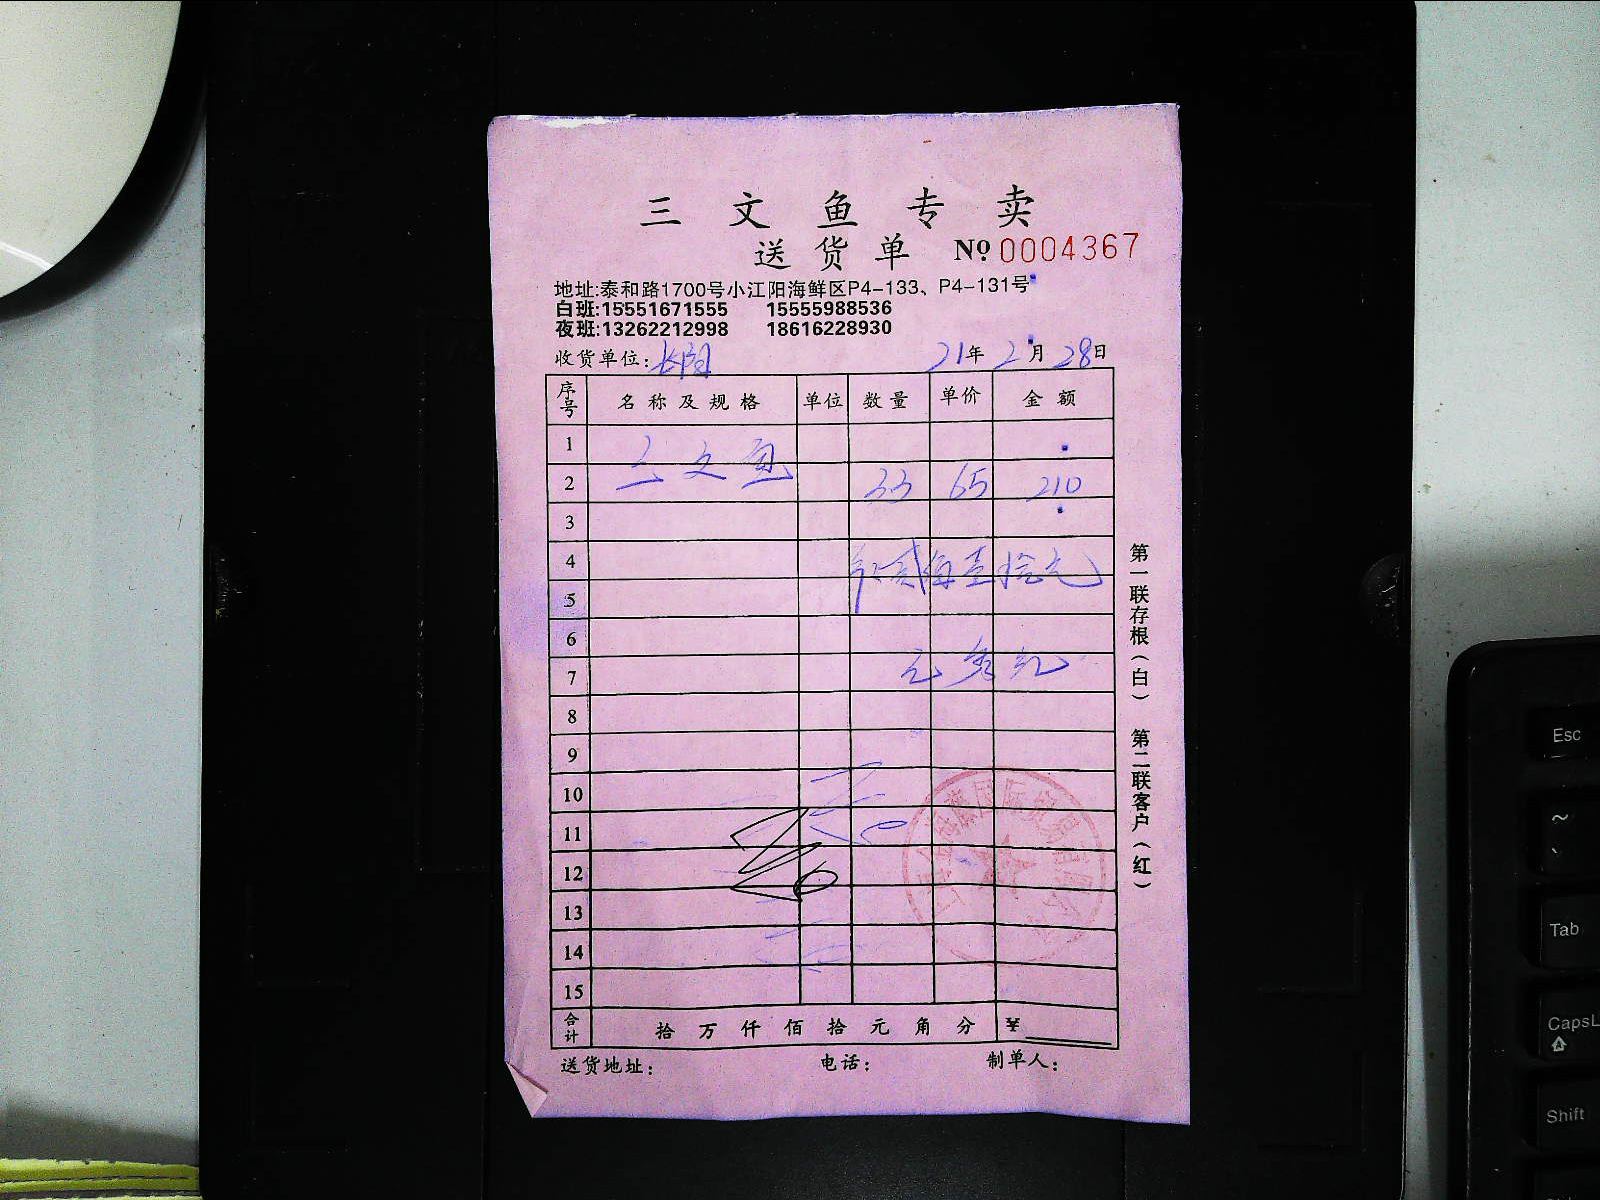 三文鱼专卖
送货单 № 0004367
地址:泰和路1700号小江阳海鲜区P4-133、P4-131号
白班:15551671555 15555988536
夜班:13262212998 18616228930
收货单位: 21年 2月 28日
序号 名称及规格 单位 数量 单价 金额
1
2 三文鱼 33 65 210
3
4 贰佰壹拾元
5
6
7
8
9
10
11
12
13
14
15
合计 拾 万 仟 佰 拾 元 角 分 ¥
送货地址: 电话: 制单人:
第一联存根(白) 第二联客户(红)
Esc
~
Tab
CapsL
Shift